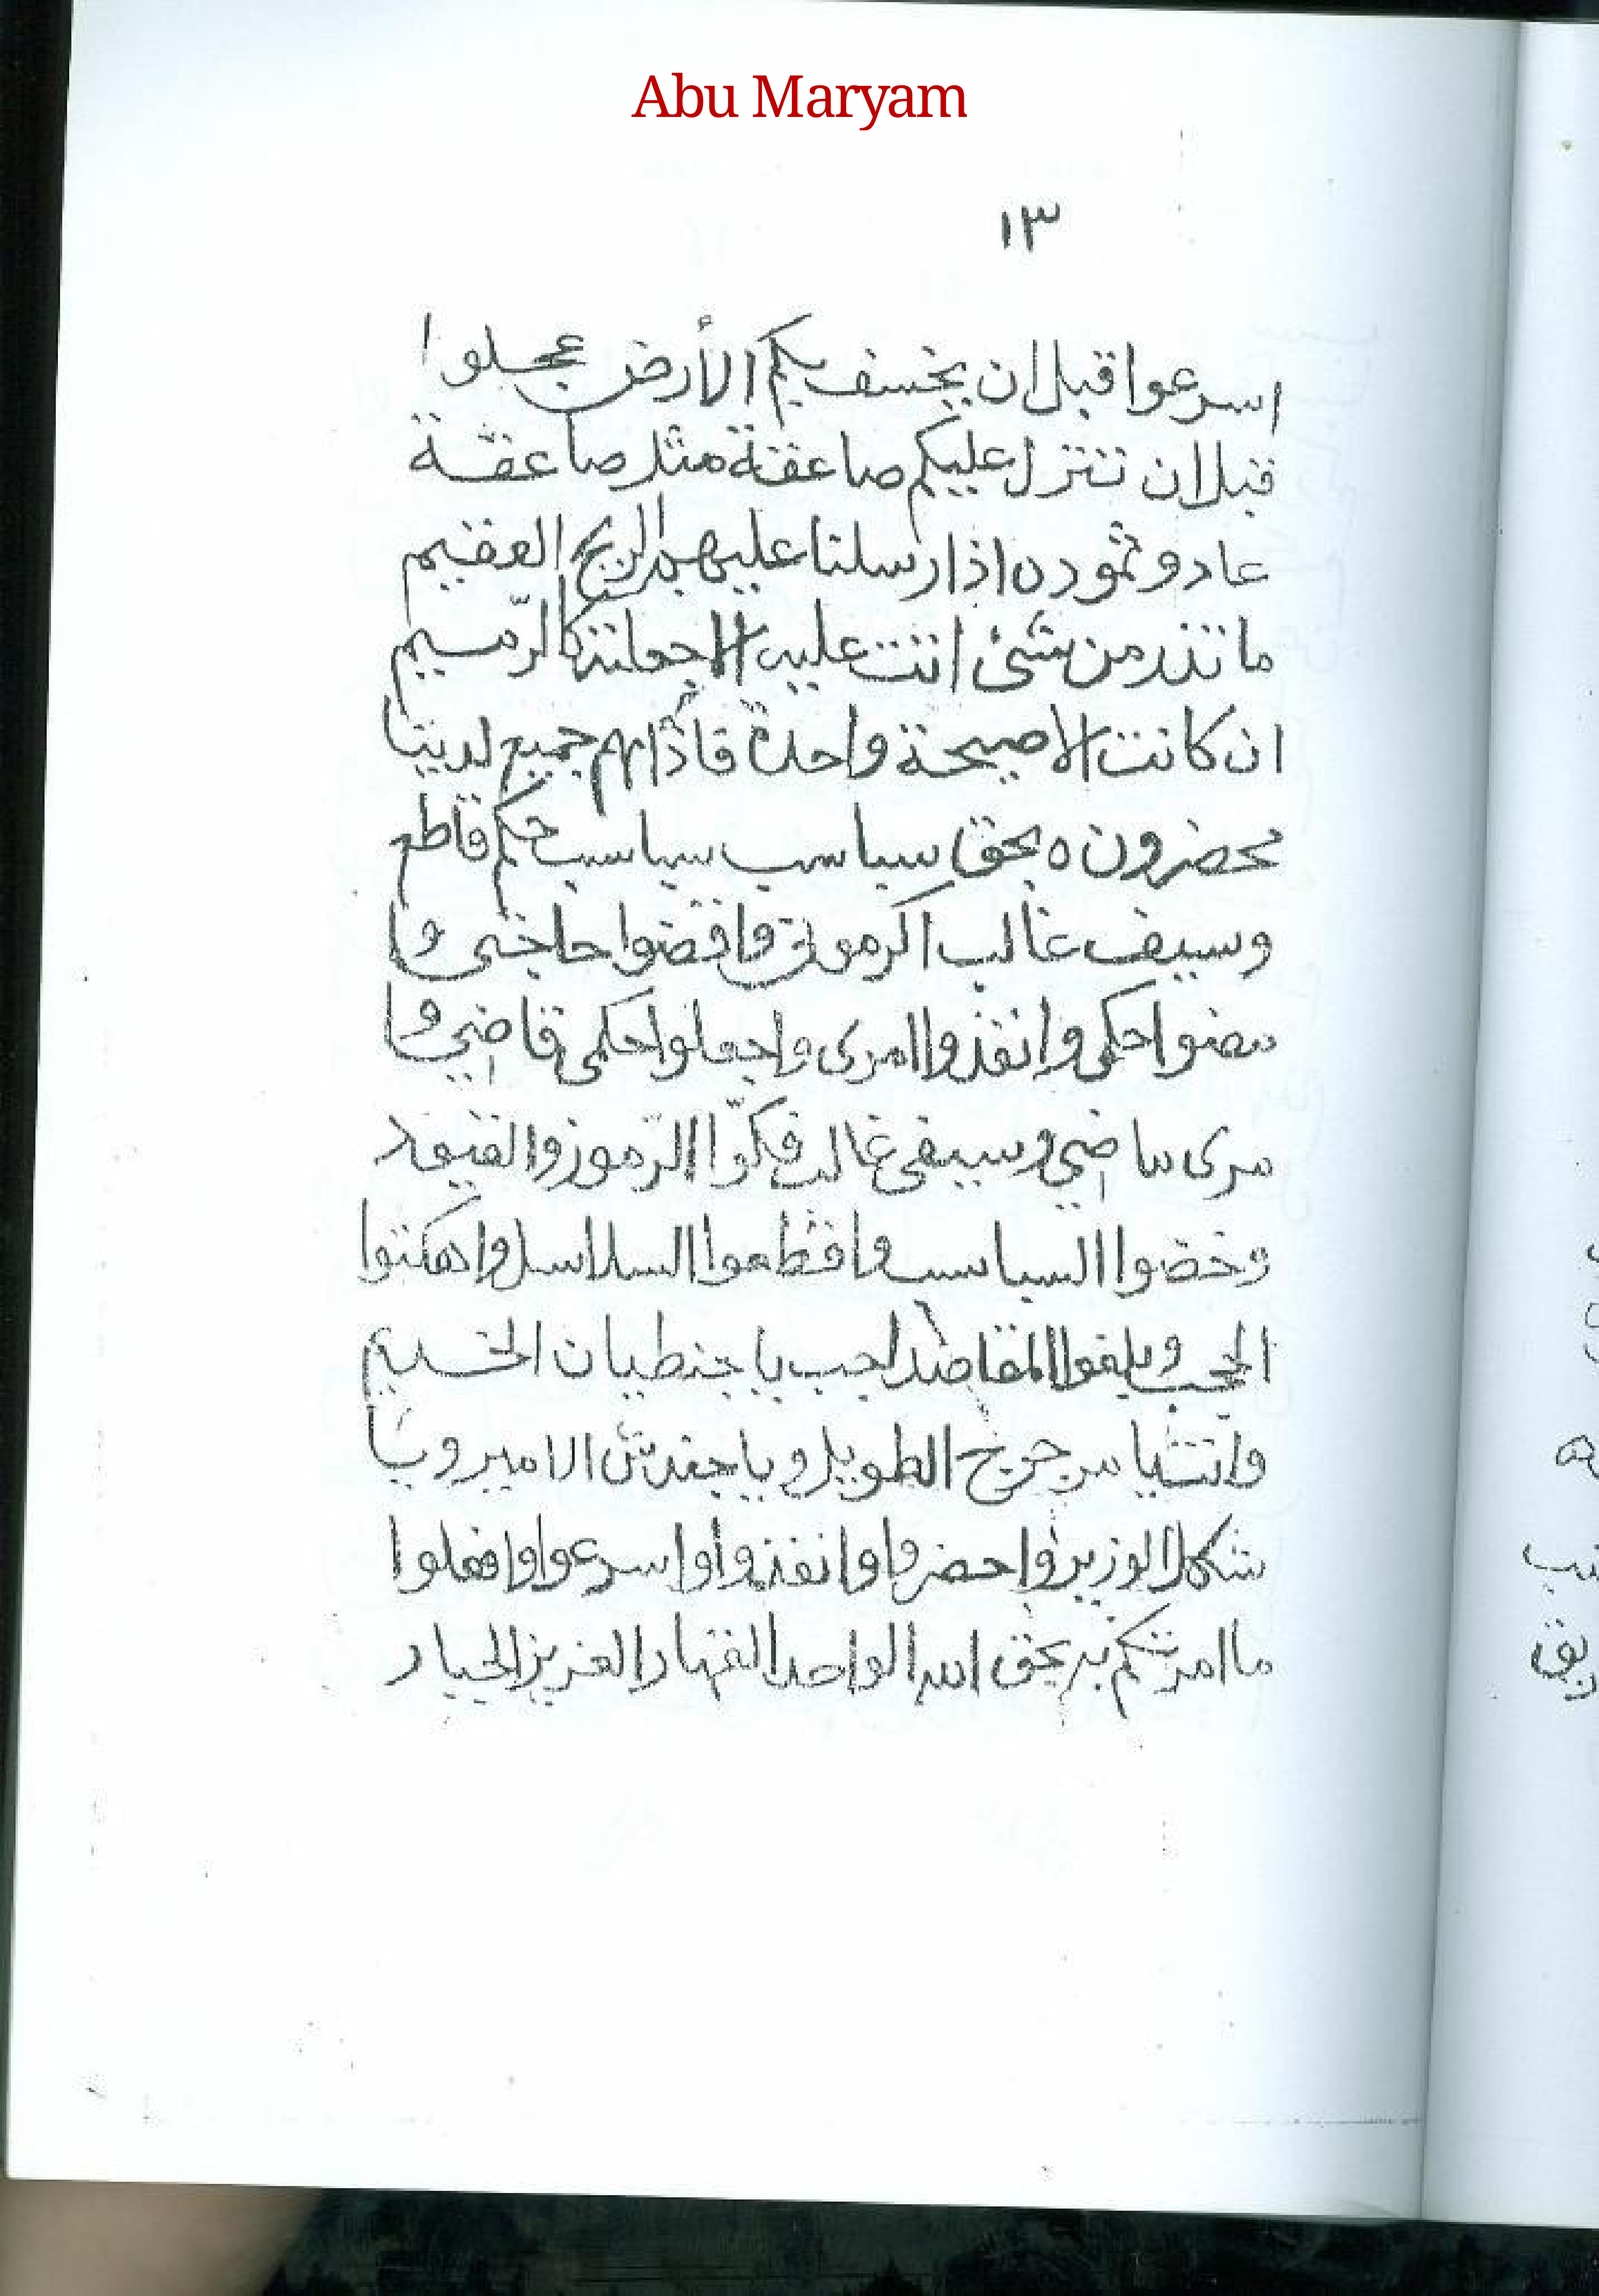 Abu Maryam
١٣
اسرعوا قبل ان يخسف بكم الأرض عجلوا
قبل ان تنزل عليكم صاعقة مثل صاعقة
عاد وثمود ه اذ ارسلنا عليهم الريح العقيم
ما تذر من شئ اتت عليه الا جعلته كالرّميم
ان كانت الا صيحة واحدة فاذا هم جميع لدينا
محضرون ه بحق سياسب سياسب حكم قاطع
وسيف غالب اكرموني واقضوا حاجتي وا
مضوا حكمي وانفذوا امرى واجعلوا حكمي قاضي وا
مرى ماضي وسيفي غالب فكّوا الرّموز والقيود
وخضوا السياسب واقطعوا السلاسل واهكتوا
الحجب و بلغوا المقاصد اجب يا جنطيان الخديم
وانت يا سرجرج الطويل و يا جندش الامير و يا
شكملا الوزير واحضروا وانفذوا واسرعوا وافعلوا
ما امرتكم به بحق الله الواحد القهار العزيز الجبار